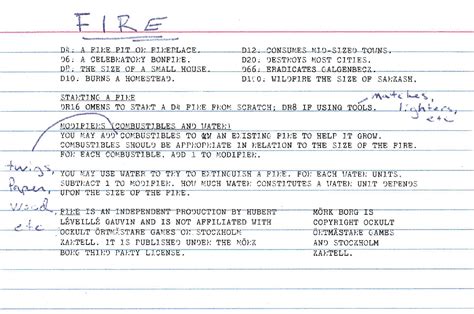 FIRE
D4: A FIRE PIT OR FIREPLACE.
D6: A CELEBRATORY BONFIRE.
D8: THE SIZE OF A SMALL HOUSE.
D10: BURNS A HOMESTEAD.
D12: CONSUMES MID-SIZED TOWNS.
D20: DESTROYS MOST CITIES.
D66: ERADICATES GALGENBECK.
D100: WILDFIRE THE SIZE OF SARKASH.
STARTING A FIRE
DR16 OMENS TO START A D4 FIRE FROM SCRATCH; DR8 IF USING TOOLS.
matches,
lighters,
etc
MODIFIERS (COMBUSTIBLES AND WATER)
YOU MAY ADD COMBUSTIBLES TO AN EXISTING FIRE TO HELP IT GROW.
COMBUSTIBLES SHOULD BE APPROPRIATE IN RELATION TO THE SIZE OF THE FIRE.
FOR EACH COMBUSTIBLE, ADD 1 TO MODIFIER.
twigs,
Paper,
wood,
etc
YOU MAY USE WATER TO TRY TO EXTINGUISH A FIRE. FOR EACH WATER UNITS.
SUBTRACT 1 TO MODIFIER. HOW MUCH WATER CONSTITUTES A WATER UNIT DEPENDS
UPON THE SIZE OF THE FIRE.
FIRE IS AN INDEPENDENT PRODUCTION BY HUBERT
LÉVEILLÉ GAUVIN AND IS NOT AFFILIATED WITH
OCKULT ÖRTMÄSTARE GAMES OR STOCKHOLM
KARTELL. IT IS PUBLISHED UNDER THE MÖRK
BORG THIRD PARTY LICENSE.
MÖRK BORG IS
COPYRIGHT OCKULT
ÖRTMÄSTARE GAMES
AND STOCKHOLM
KARTELL.